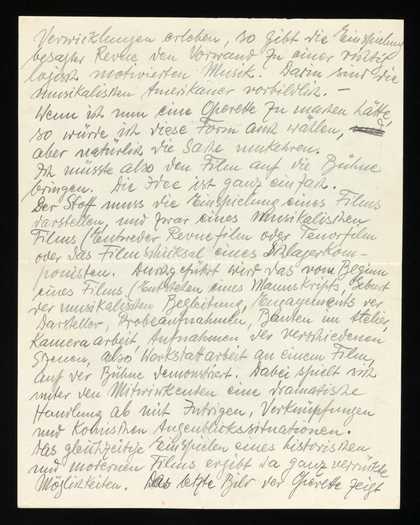 Verwicklungen erleben, so gibt die Einspielung
besagter Revue den Vorwand zu einer richtig
logisch motivierten Musik. Darin sind die
musikalischen Amerikaner vorbildlich. –
Wenn ich nun eine Operette zu machen hätte,
so würde ich diese Form auch wählen,
aber natürlich die Sache umkehren.
Ich müsste also den Film auf die Bühne
bringen. Die Idee ist ganz einfach.
Der Stoff muss die Einspielung eines Films
darstellen, und zwar eines musikalischen
Films (Entweder Revuefilm oder Tenorfilm
oder das Filmschicksal eines Schlagerkom-
ponisten. Durchgeführt wird das vom Beginn
eines Films (Entstehen eines Manuskripts, Geburt
der musikalischen Begleitung, Engagements der
Darsteller, Probeaufnahmen, Bauten im Atelier,
Kameraarbeit, Aufnahmen der verschiedenen
Szenen, also Werkstatarbeit an einem Film,
auf der Bühne demonstriert. Dabei spielt sich
unter den Mitwirkenden eine dramatische
Handlung ab mit Intrigen, Verknüpfungen
und komischen Augenblickssituationen.
Das gleichzeitige Einspielen eines historischen
und modernen Films ergibt da ganz verrückte
Möglichkeiten. Das letzte Bild der Operette zeigt